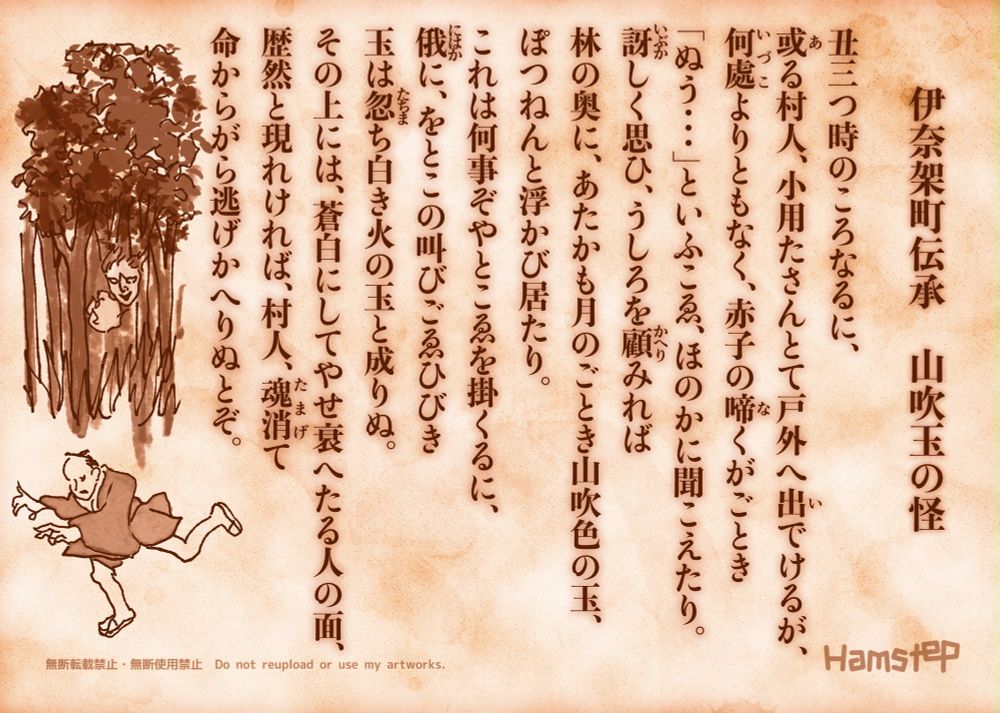 伊奈架町伝承　山吹玉の怪
丑三つ時のころなるに、
或る村人、小用たさんとて戸外へ出でけるが、
何處よりともなく、赤子の啼くがごとき
「ぬう・・・」といふこゑ、ほのかに聞こえたり。
訝しく思ひ、うしろを顧みれば
林の奥に、あたかも月のごとき山吹色の玉、
ぽつねんと浮かび居たり。
これは何事ぞやとこゑを掛くるに、
俄に、をとこの叫びごゑひびき
玉は忽ち白き火の玉と成りぬ。
その上には、蒼白にしてやせ衰へたる人の面、
歴然と現れければ、村人、魂消て
命からがら逃げかへりぬとぞ。
あ
い
いづこ
な
いぶか
かへり
にはか
たちま
たまげ
無断転載禁止・無断使用禁止　Do not reupload or use my artworks.
Hamstep